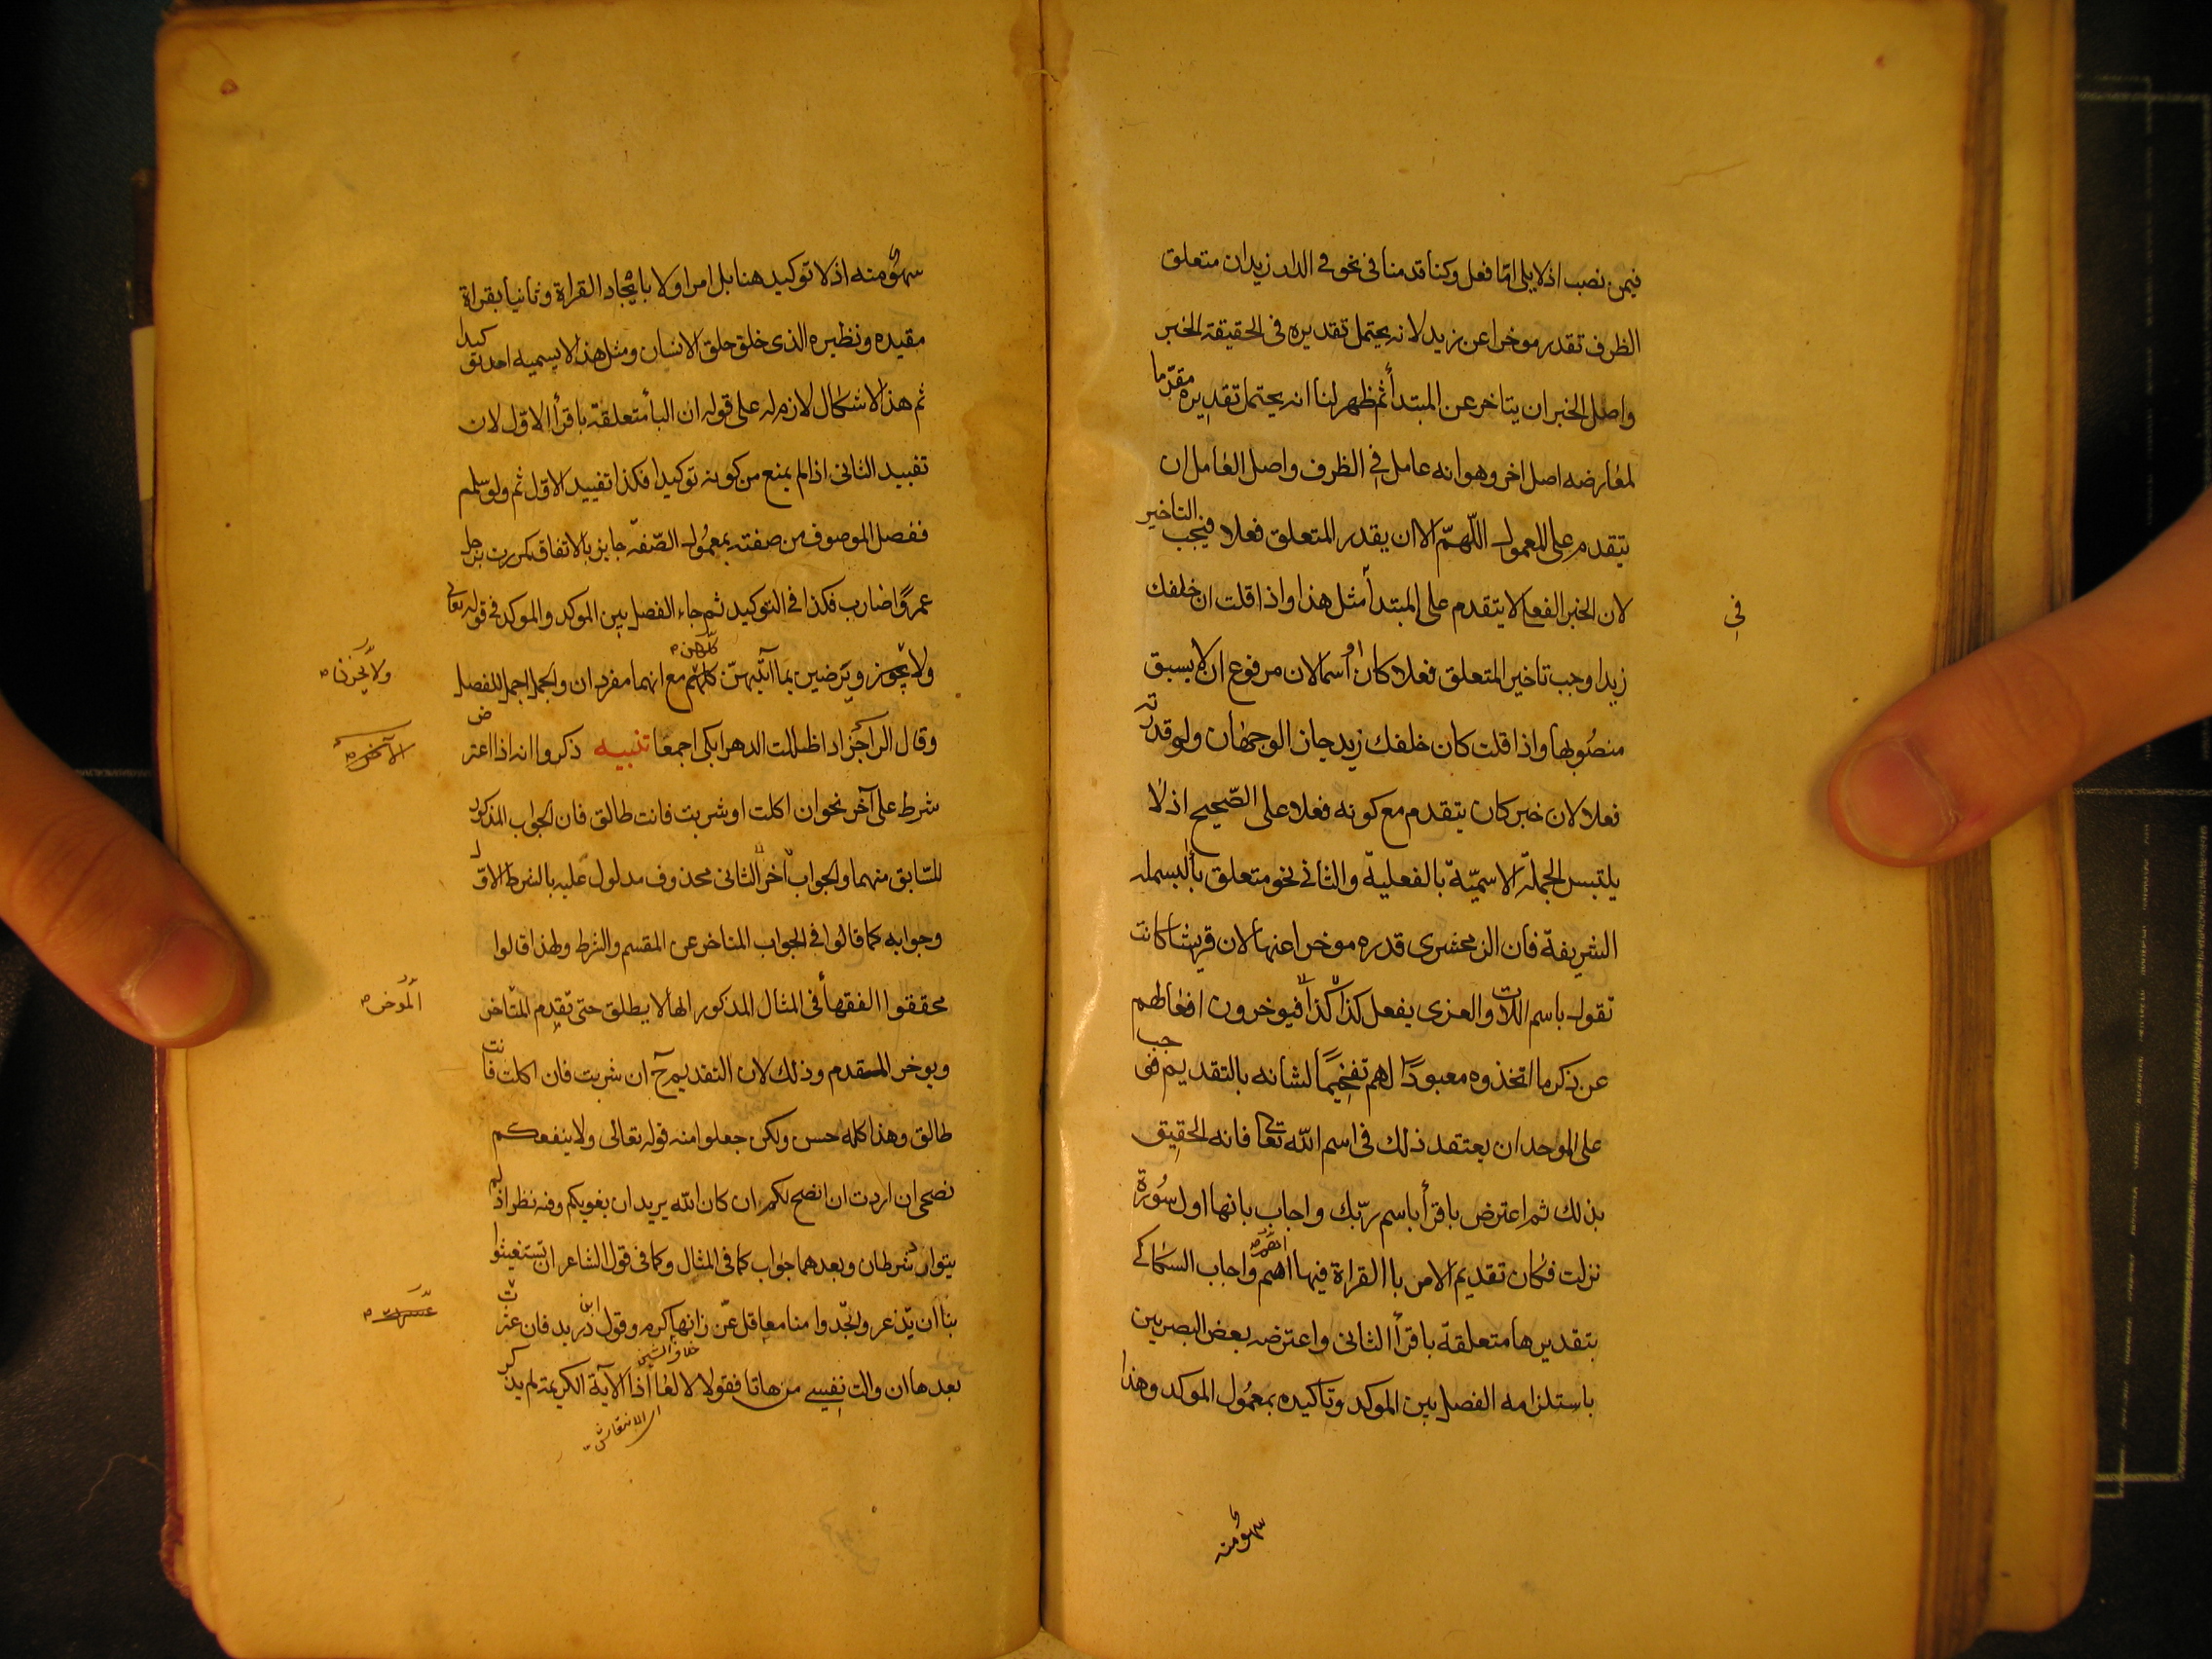 فيمن نصب اذ لا يلى امّا فعل وكنا قدمنا فى نحو فى الدار زيد ان متعلق
الظرف تقدر موخرا عن زيد لانه يحتمل تقديره فى الحقيقة الخبر
واصل الخبر ان يتاخر عن المبتدأ ثم ظهر لنا انه يحتمل تقديره مقدّما
لمعارضه اصل اخر وهو انه عامل فى الظرف واصل العامل ان
يتقدم على المعمول اللّهمّ الا ان يقدر المتعلق فعلا فيجب التاخير
لان الخبر الفعل لا يتقدم على المبتدأ مثل هذا واذا قلت ان خلفك
فى
زيدا وجب تاخير المتعلق فعلا كان او اسما لان مرفوع ان لا يسبق
منصوبها واذا قلت كان خلفك زيد جاز الوجهان ولو قدرته
فعلا لان خبر كان يتقدم مع كونه فعلا على الصّحيح اذ لا
يلتبس الجملة الاسميّة بالفعلية والثانى نحو متعلق بالبسملة
الشريفة فان الزمخشرى قدره موخرا عنها لان قريشا كانت
تقول باسم اللات والعزى يفعل كذا كذا فيوخرون افعالهم
عن ذكر ما اتخذوه معبودًا لهم تفخيمًا لشانه بالتقديم فيجب
على الموحد ان يعتقد ذلك فى اسم الله تعالى فانه الحقيق
بذلك ثم اعترض باقرأ باسم ربّك واجاب بانها اول سورة
نزلت فكان تقديم الامر باالقراة فيها اهم واجاب السكاكى
بتقديرها متعلقة باقرأ الثانى واعترضه بعض البصريين
باستلزامه الفصل بين الموكد وتاكيده بمعمول الموكد وهذا
سهو منه
سهو منه اذ لا توكيد هنا بل امر اولا بايجاد القراة وثانيا بقراة
مقيده ونظيره الذى خلق خلق الانسان ومثل هذا لا يسميه احد توكيدا
ثم هذا الاشكال لازم له على قوله ان البأ متعلقة باقرأ الاول لان
تقييد الثانى اذا لم يمنع من كونه توكيدا فكذا تقييد الاول ثم ولو سلم
ففصل الموصوف من صفته بمعمول الصّفة جايز بالاتفاق كمررت برجل
عمرًا ضارب فكذا فى التوكيد ثم جاء الفصل بين الموكد والموكد فى قوله تعالى
ولا يحزن ويرضين بما آتيهنّ كلهنّ مع انهما مفردان والجمل اجمل للفصل
ولا يحزنّ
وقال الراجز اذا ظللت الدهر ابكى اجمعا تنبيه ذكروا انه اذا اعترض
الآخر
شرط على آخر نحو ان اكلت او شربت فانت طالق فان الجواب المذكور
للسّابق منهما والجواب آخر الثانى محذوف مدلول عليه بالشرط الاول
وجوابه كما قالوا فى الجواب المتاخر عن المقسم والشرط ولهذا قالوا
محققوا الفقهأ فى المثال المذكور انها لا يطلق حتى تقدم المتاخر
الموخر
ويوخر المتقدم وذلك لان التقديم ح ان شربت فان اكلت فانت
طالق وهذا كله حسن ولكن جعلوا منه قوله تعالى ولا ينفعكم
نصحى ان اردت ان انصح لكم ان كان الله يريد ان يغويكم وفيه نظر اذ لم
يتوال شرطان وبعدهما جواب كما فى المثال وكما فى قول الشاعر ان تستغيثوا
بنا ان تذعروا تجدوا منا معاقل عزّ زانها كرم وقول ابن دريد فان عثرت
بعدها ان والت نفسى من هاتا فقولا لا لعا اذا الآية الكريمة لم يذكر